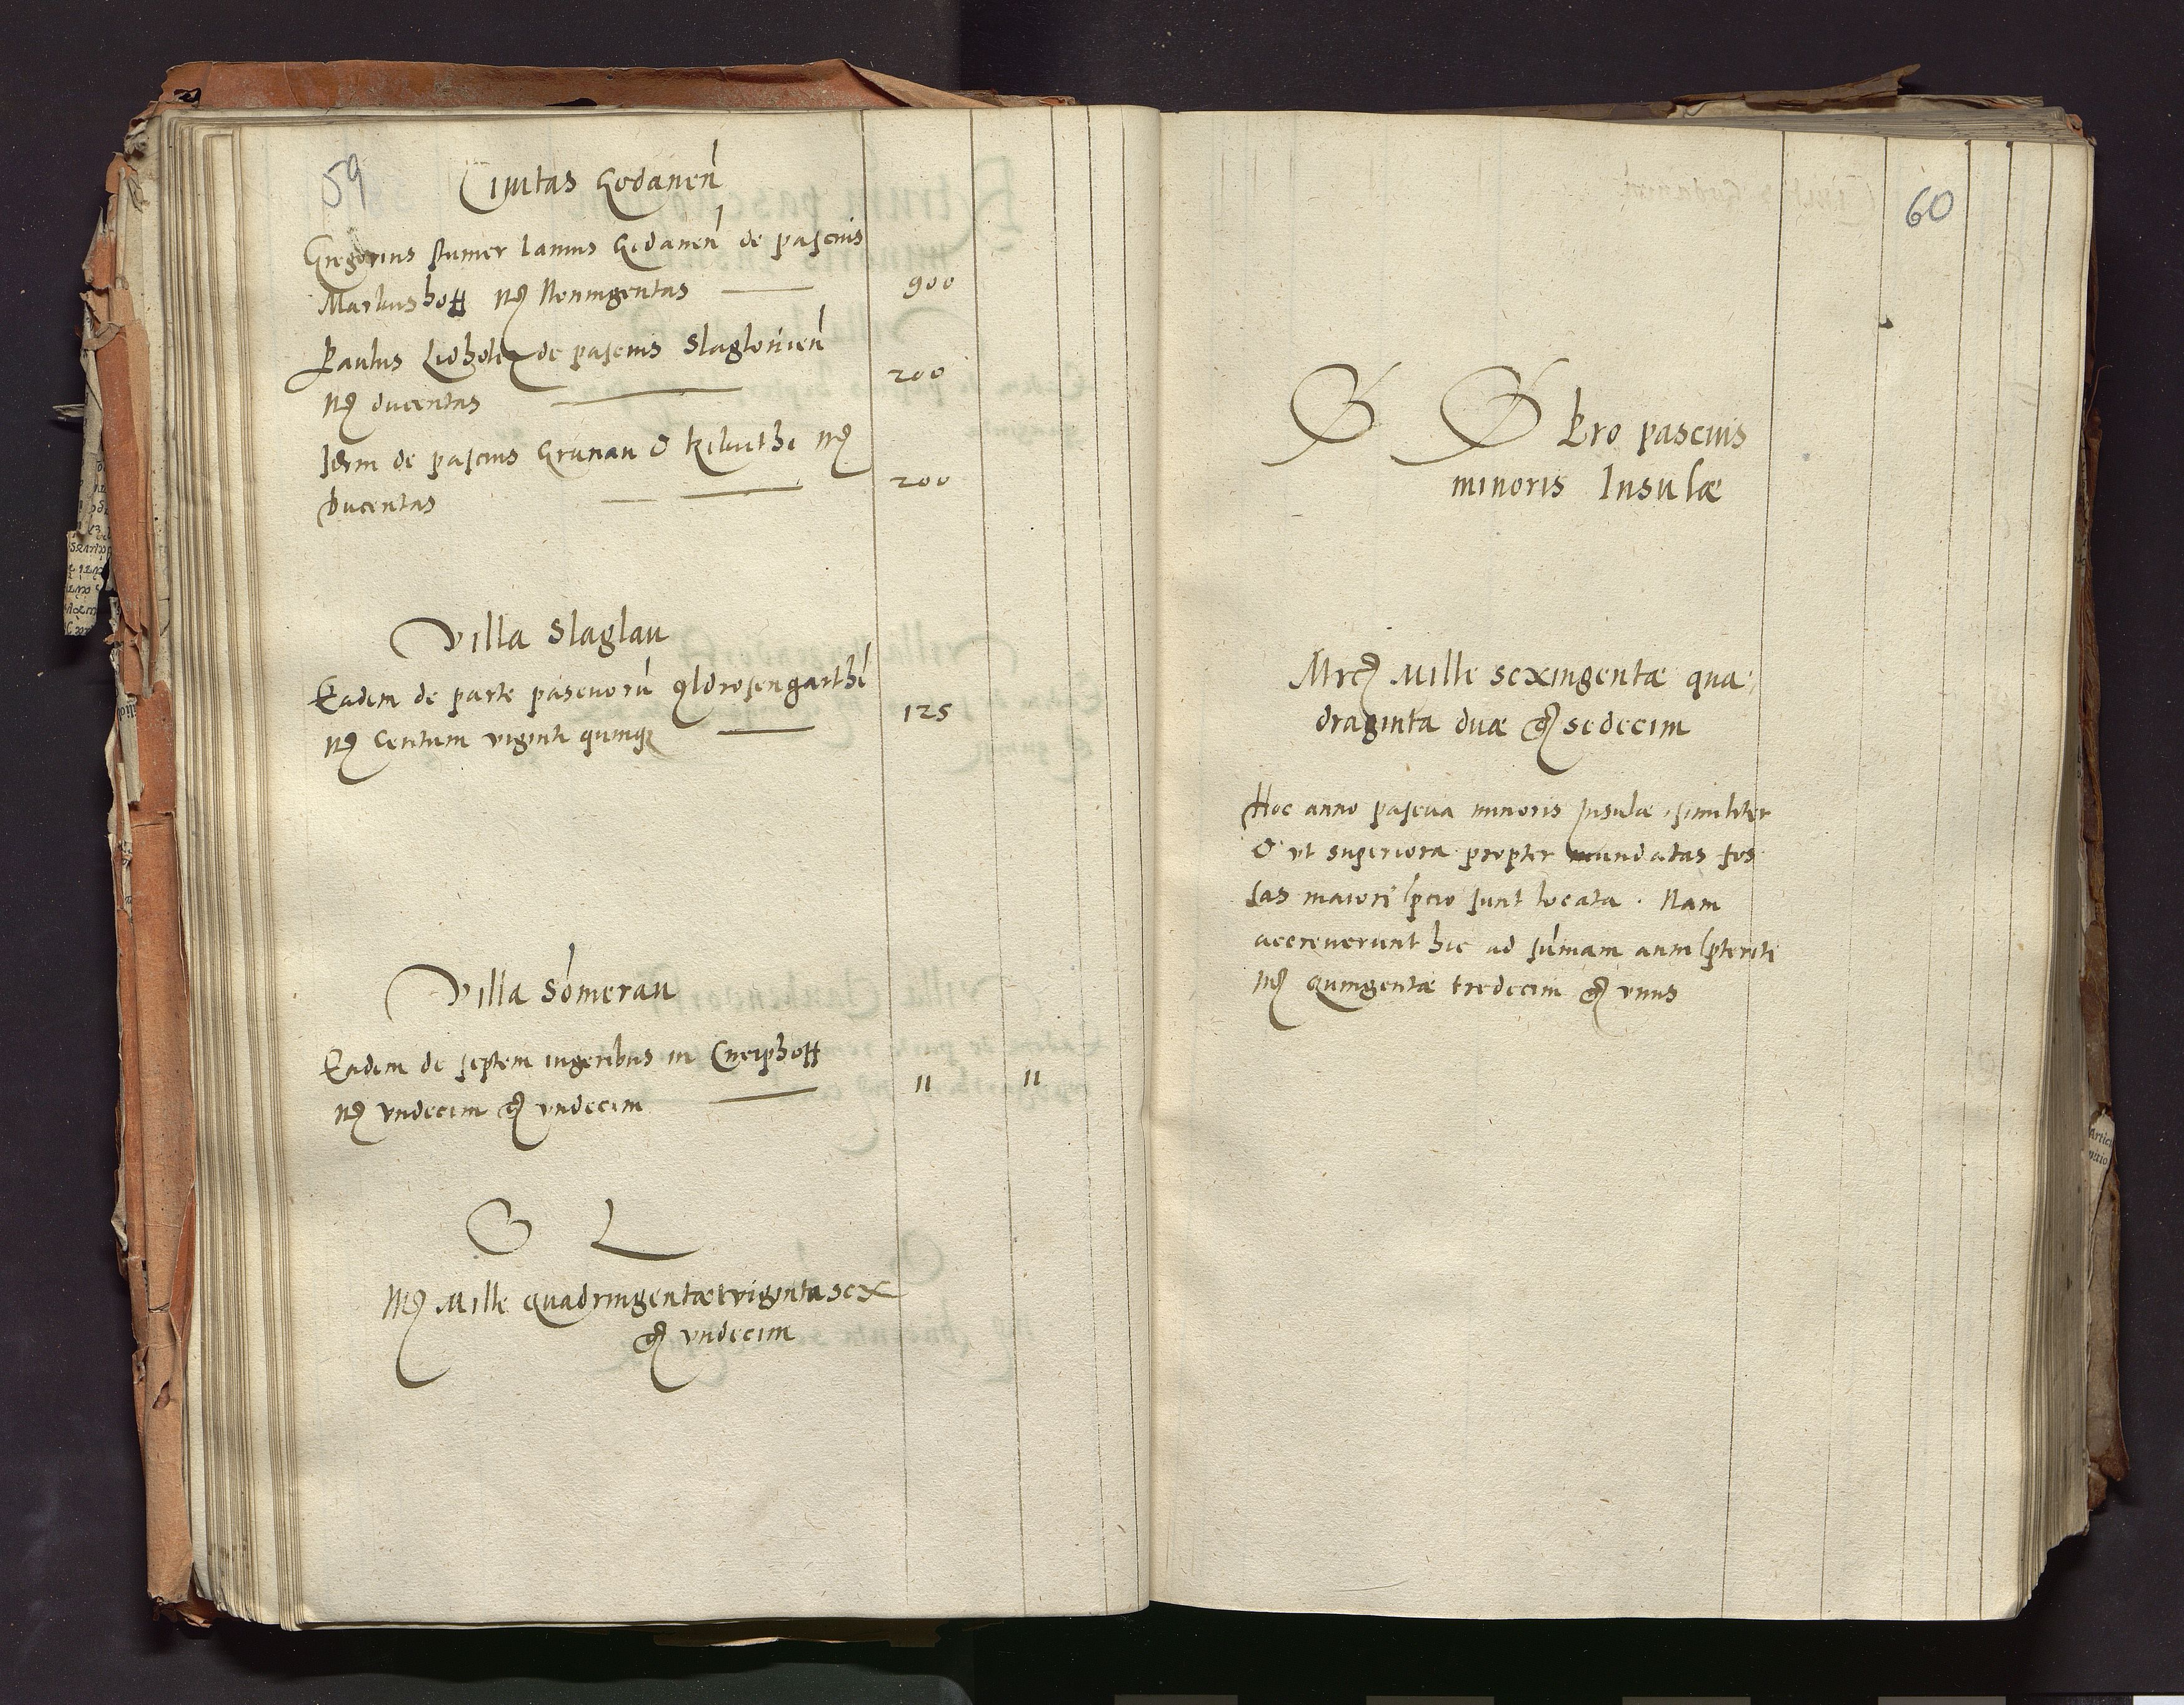 59
Civitas Gedanen̄
Gregorius stumer lanius Gedanen̄ de pascuis
Markushoff mrc Noningentas 900
Paulus Lidholcz de pascuis Slaglouien̄
mrc ducentas 200
Idem de pascuis Grunau & kikuithi mrc
Ducentas 200
Villa Slaglau
Eadem de parte pascuorū Aldrosengarthē
mrc Centum viginti quinq; 125
Villa Sōmerau
Eadem de septem iugeribus in Cneiphoff
mrc vndecim gr vndecim 11 11
S L
mrc Mille quadringentae triginta sex
gr vndecim
60
S S Pro pascuis
minoris Insulæ
Mrc Mille sexingentæ qua
draginta duæ gr sedecim
Hoc anno pascua minoris Insulæ similiter
& vt superiora propter mundatas fos
sas maiori pcio sunt locata. Nam
accreuerunt hic ad sūmam anni pteriti
mrc Quingentæ tredecim gr vnus